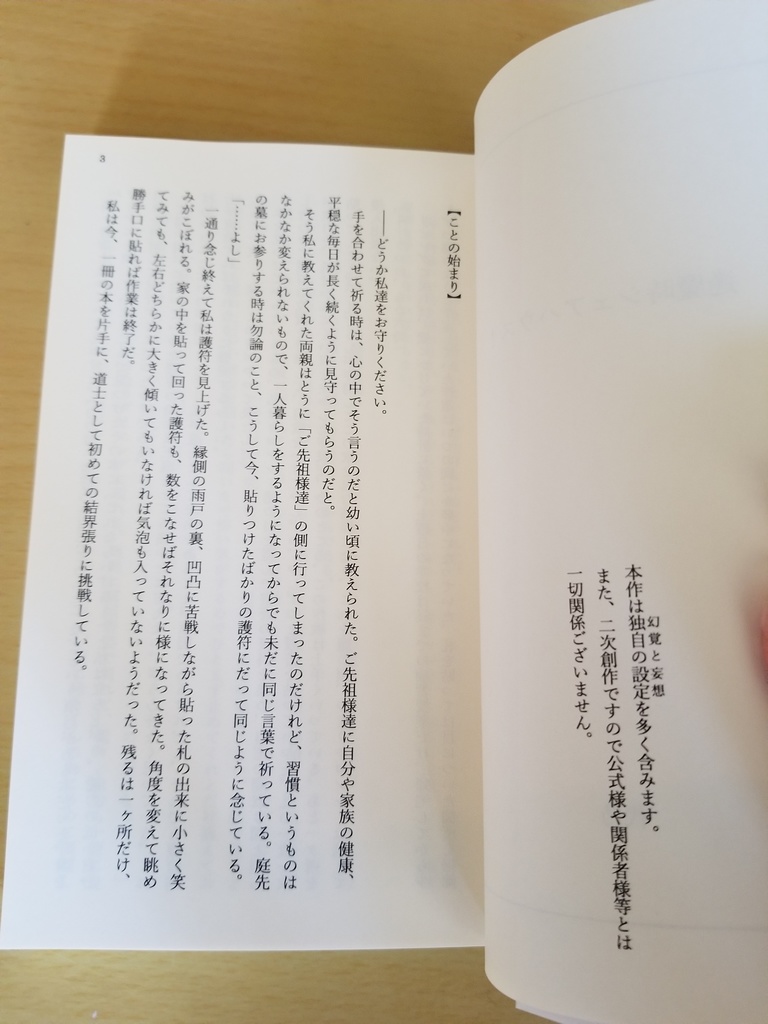 本作は独自の設定を多く含みます。
幻覚と妄想
また、二次創作ですので公式様や関係者様等とは
一切関係ございません。
【ことの始まり】
――どうか私達をお守りください。
手を合わせて祈る時は、心の中でそう言うのだと幼い頃に教えられた。ご先祖様達に自分や家族の健康、
平穏な毎日が長く続くように見守ってもらうのだと。
そう私に教えてくれた両親はとうに「ご先祖様達」の側に行ってしまったのだけれど、習慣というものは
なかなか変えられないもので、一人暮らしをするようになってからでも未だに同じ言葉で祈っている。庭先
の墓にお参りする時は勿論のこと、こうして今、貼りつけたばかりの護符にだって同じように念じている。
「……よし」
一通り念じ終えて私は護符を見上げた。縁側の雨戸の裏、凹凸に苦戦しながら貼った札の出来に小さく笑
みがこぼれる。家の中を貼って回った護符も、数をこなせばそれなりに様になってきた。角度を変えて眺め
てみても、左右どちらかに大きく傾いてもいなければ気泡も入っていないようだった。残るは一ヶ所だけ、
勝手口に貼れば作業は終了だ。
私は今、一冊の本を片手に、道士として初めての結界張りに挑戦している。
3